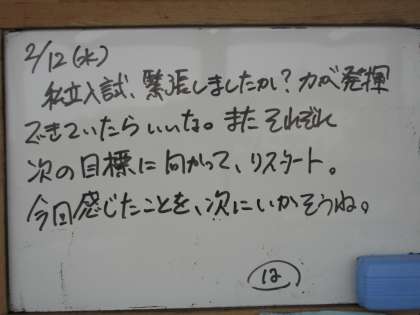 2/12(水)
私立入試、緊張しましたか?力が発揮
できていたらいいな。またそれぞれ
次の目標に向かって、リスタート。
今回感じたことを、次にいかそうね。